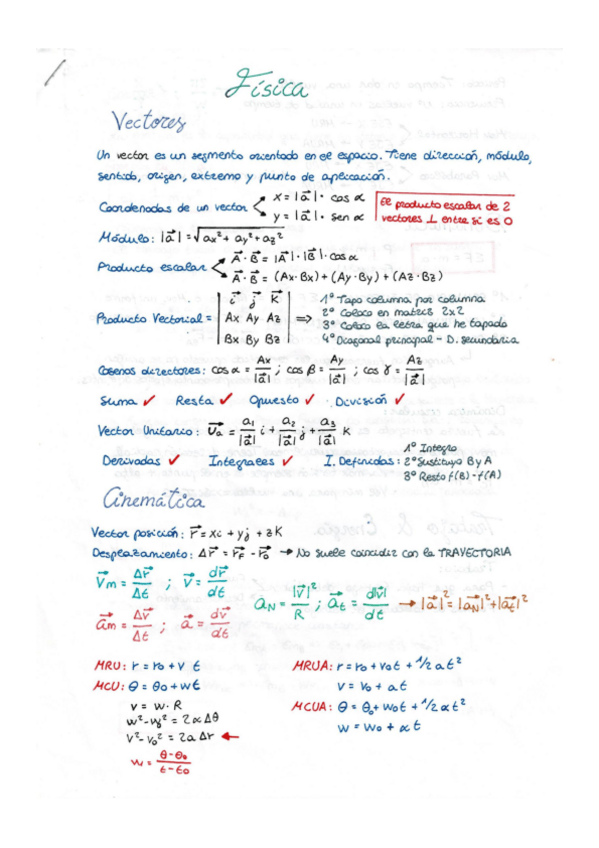 Física
Vectores
Un vector es un segmento orientado en el espacio. Tiene dirección, módulo,
sentido, origen, extremo y punto de aplicación.
Coordenadas de un vector < x = |a⃗| · cos α
y = |a⃗| · sen α
El producto escalar de 2
vectores ⊥ entre si es 0
Módulo: |a⃗| = √ax² + ay² + az²
Producto escalar < A⃗ · B⃗ = |A⃗| · |B⃗| · cos α
A⃗ · B⃗ = (Ax · Bx) + (Ay · By) + (Az · Bz)
Producto Vectorial = | i⃗ j⃗ k⃗ |
| Ax Ay Az | ⇒
| Bx By Bz |
1º Tapo columna por columna
2º Coloco en matrices 2x2
3º Coloco la letra que he tapado
4º Diagonal principal - D. secundaria
Cosenos directores: cos α = Ax/|a⃗| ; cos β = Ay/|a⃗| ; cos γ = Az/|a⃗|
Suma ✓ Resta ✓ Opuesto ✓ División ✓
Vector Unitario: u⃗a = a1/|a⃗| i + a2/|a⃗| j + a3/|a⃗| k
Derivadas ✓ Integrales ✓ I. Definidas: 1º Integro
2º Sustituyo B y A
3º Resto f(B) - f(A)
Cinemática
Vector posición: r⃗ = xi + yj + zk
Desplazamiento: Δr⃗ = r⃗F - r⃗o → No suele coincidir con la TRAYECTORIA
v⃗m = Δr⃗/Δt ; v⃗ = dr⃗/dt
a⃗m = Δv⃗/Δt ; a⃗ = dv⃗/dt
aN = |v⃗|²/R ; at = d|v⃗|/dt → |a⃗|² = |a⃗N|² + |a⃗t|²
MRU: r = ro + v t
MCU: θ = θo + wt
v = w · R
w² - wo² = 2αΔθ
v² - vo² = 2aΔr ←
w = θ - θo/t - to
MRUA: r = ro + vot + 1/2 at²
v = vo + at
MCUA: θ = θo + wot + 1/2 αt²
w = wo + αt